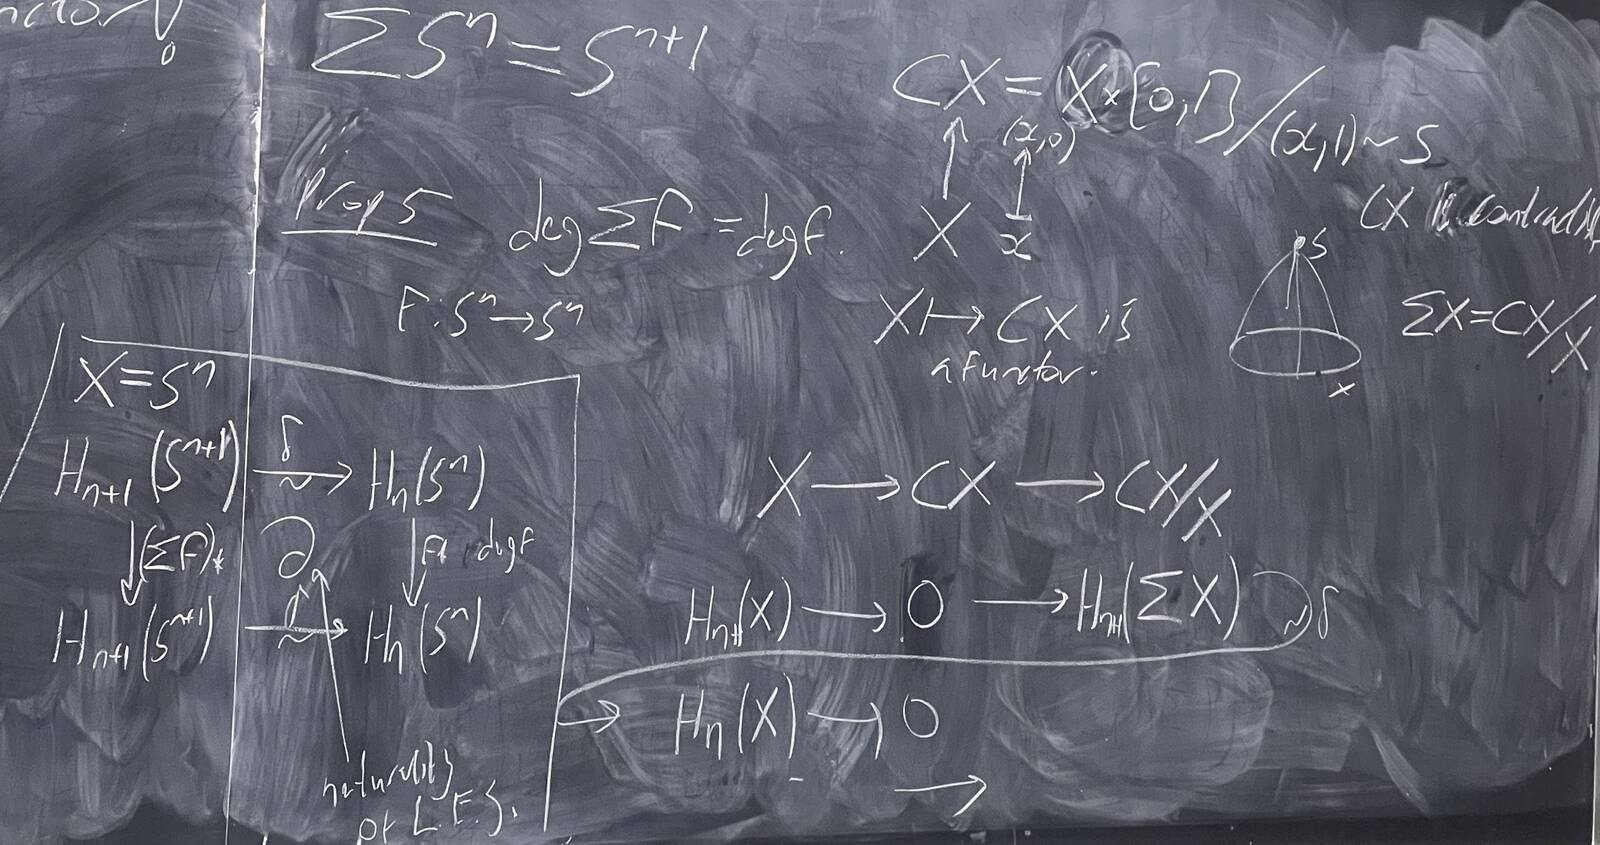 ΣSⁿ = Sⁿ⁺¹
Prop 5 deg Σf = deg f.
f : Sⁿ → Sⁿ
X = Sⁿ
Hₙ₊₁(Sⁿ⁺¹) →~ δ Hₙ(Sⁿ)
↓ (Σf)* ↓ f* · deg f
Hₙ₊₁(Sⁿ⁺¹) →~ Hₙ(Sⁿ)
naturality
of L.E.S.
CX = X × [0,1] / (x,1) ~ S
↑ (x,0)
↑
X x
CX is
X ↦ CX is
a functor.
S
x
ΣX = CX/X
X → CX → CX/X
Hₙ₊₁(X) → 0 → Hₙ₊₁(ΣX) ~ δ
→ Hₙ(X) → 0
→